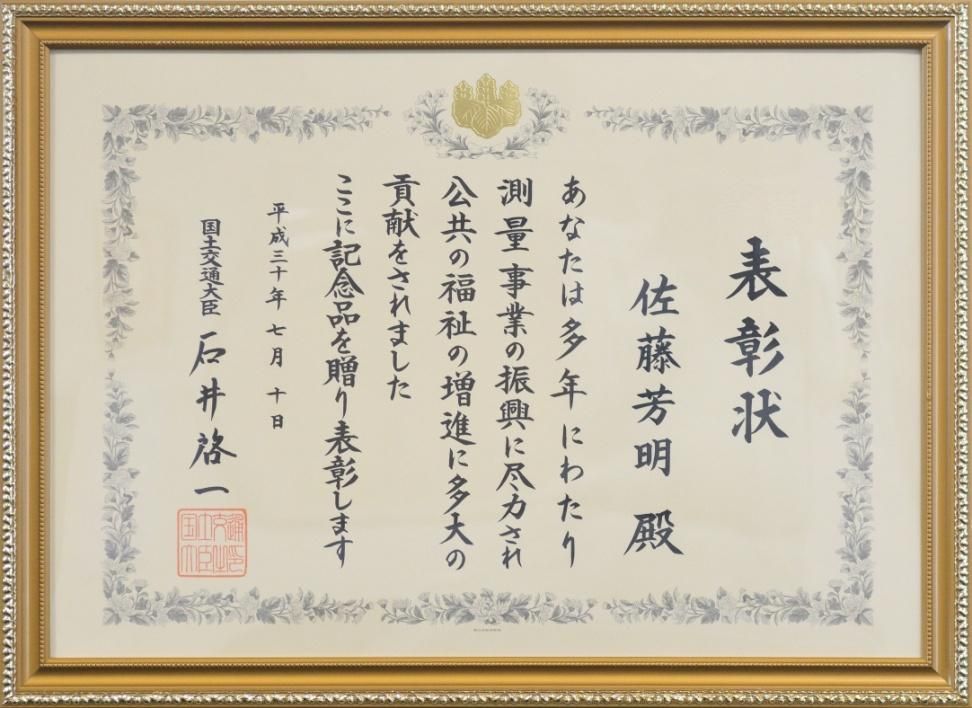 表彰状
佐藤芳明 殿
あなたは多年にわたり
測量事業の振興に尽力され
公共の福祉の増進に多大の
貢献をされました
ここに記念品を贈り表彰します
平成三十年七月十日
国土交通大臣 石井啓一